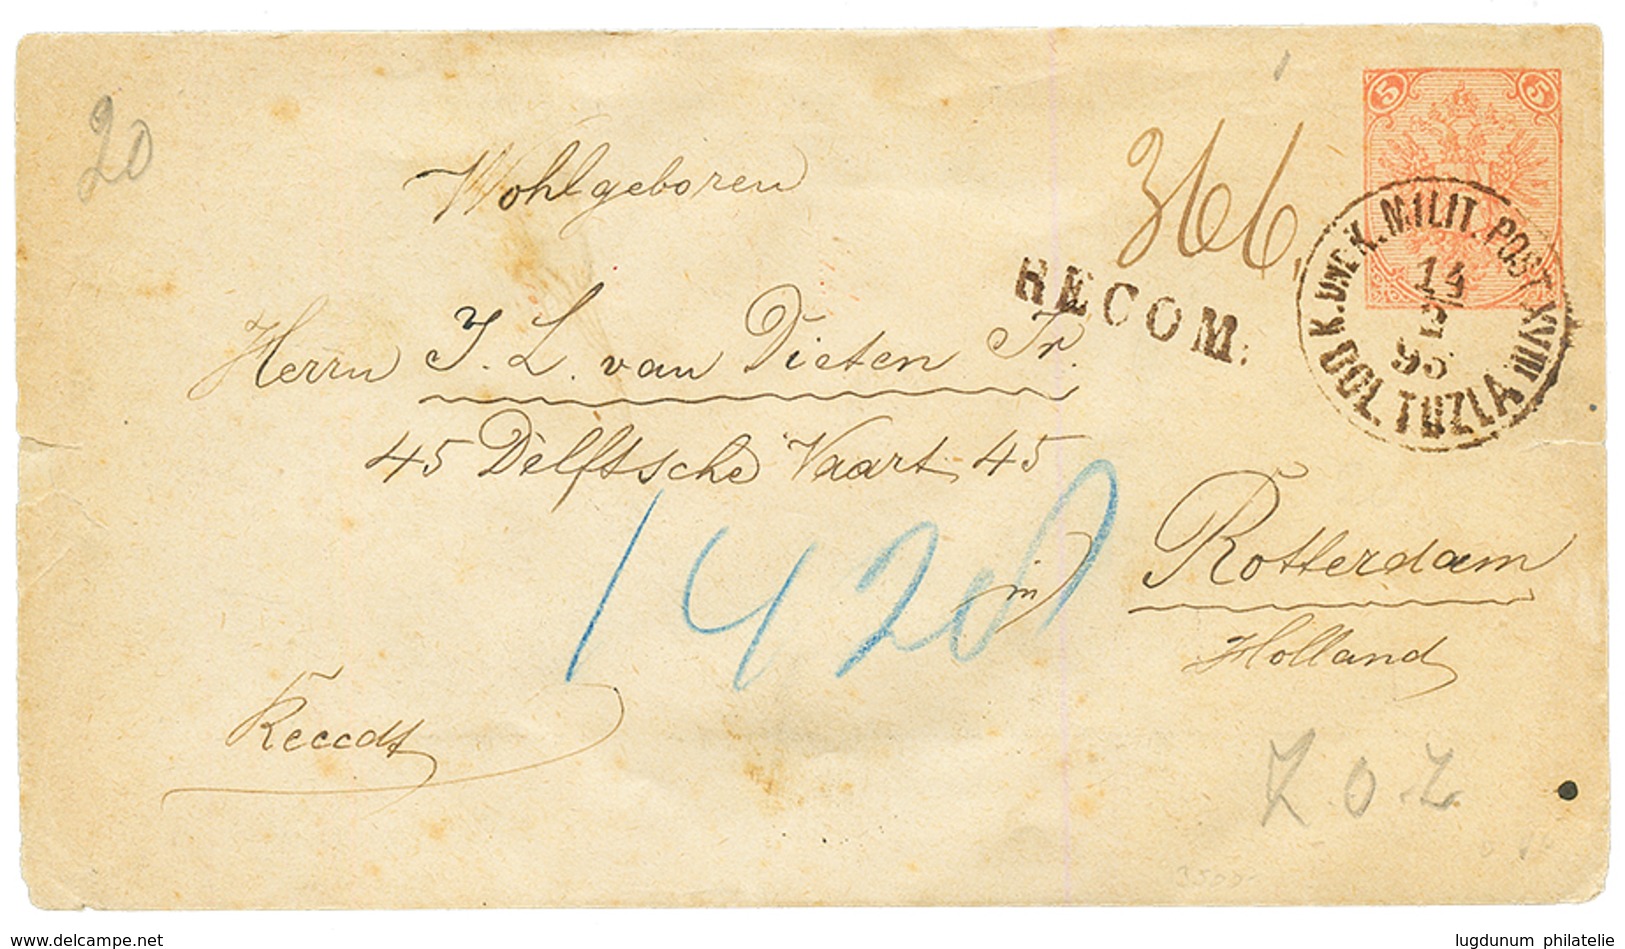 5 5
20
366
Wohlgeboren
RECOM:
K. UND K. MILIT. POST XVIII
DOL. TUZLA
Herrn J. L. van Dieten Jr.
45 Delftsche Vaart 45
1420
in Rotterdam
Holland
Z.O.Z.
delcampe.net
lugdunum philatelie